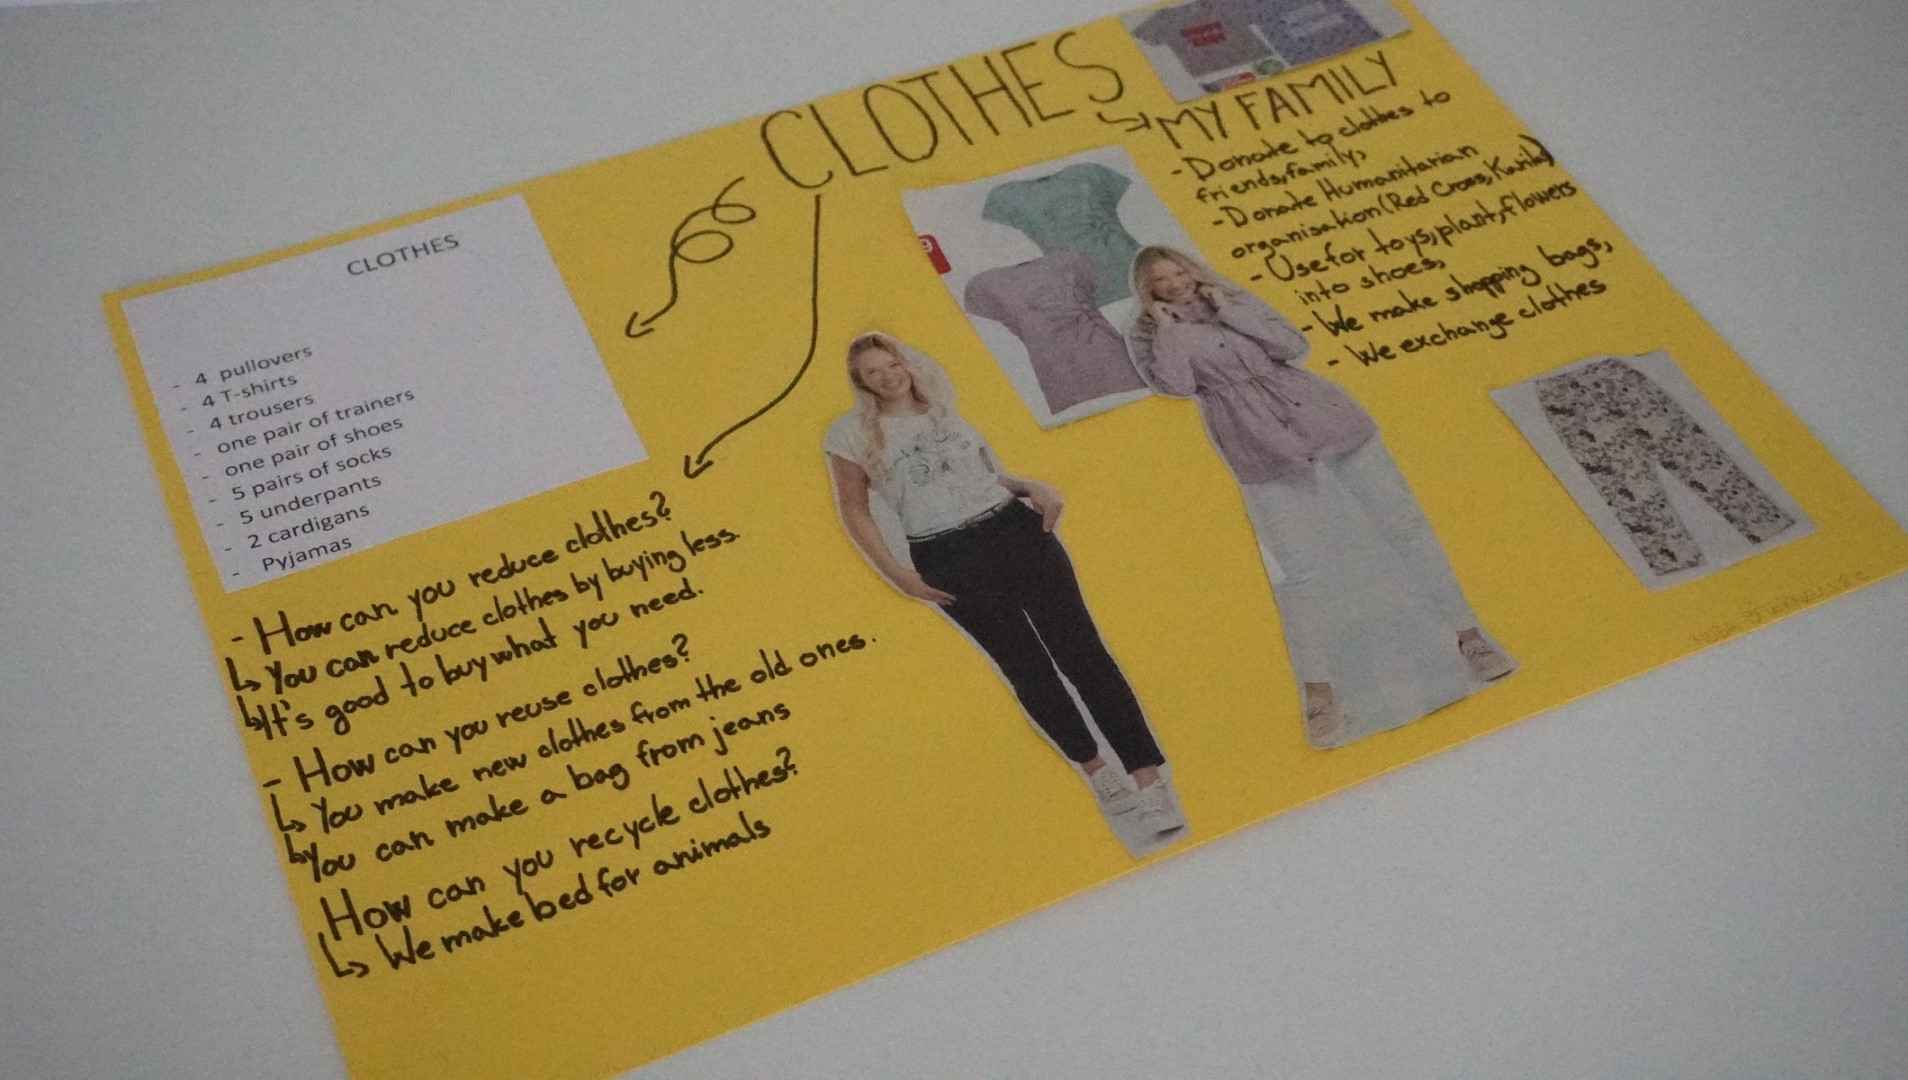 CLOTHES
CLOTHES
- 4 pullovers
- 4 T-shirts
- 4 trousers
- one pair of trainers
- one pair of shoes
- 5 pairs of socks
- 5 underpants
- 2 cardigans
- Pyjamas
- How can you reduce clothes?
↳ You can reduce clothes by buying less.
↳ It's good to buy what you need.
- How can you reuse clothes?
↳ You make new clothes from the old ones.
↳ You can make a bag from jeans
How can you recycle clothes?
↳ We make bed for animals
→ MY FAMILY
- Donate to clothes to
friends, family,
- Donate Humanitarian
organisation (Red Cross, Karila)
- Use for toys, plant, flowers
into shoes,
- We make shopping bags,
- We exchange clothes